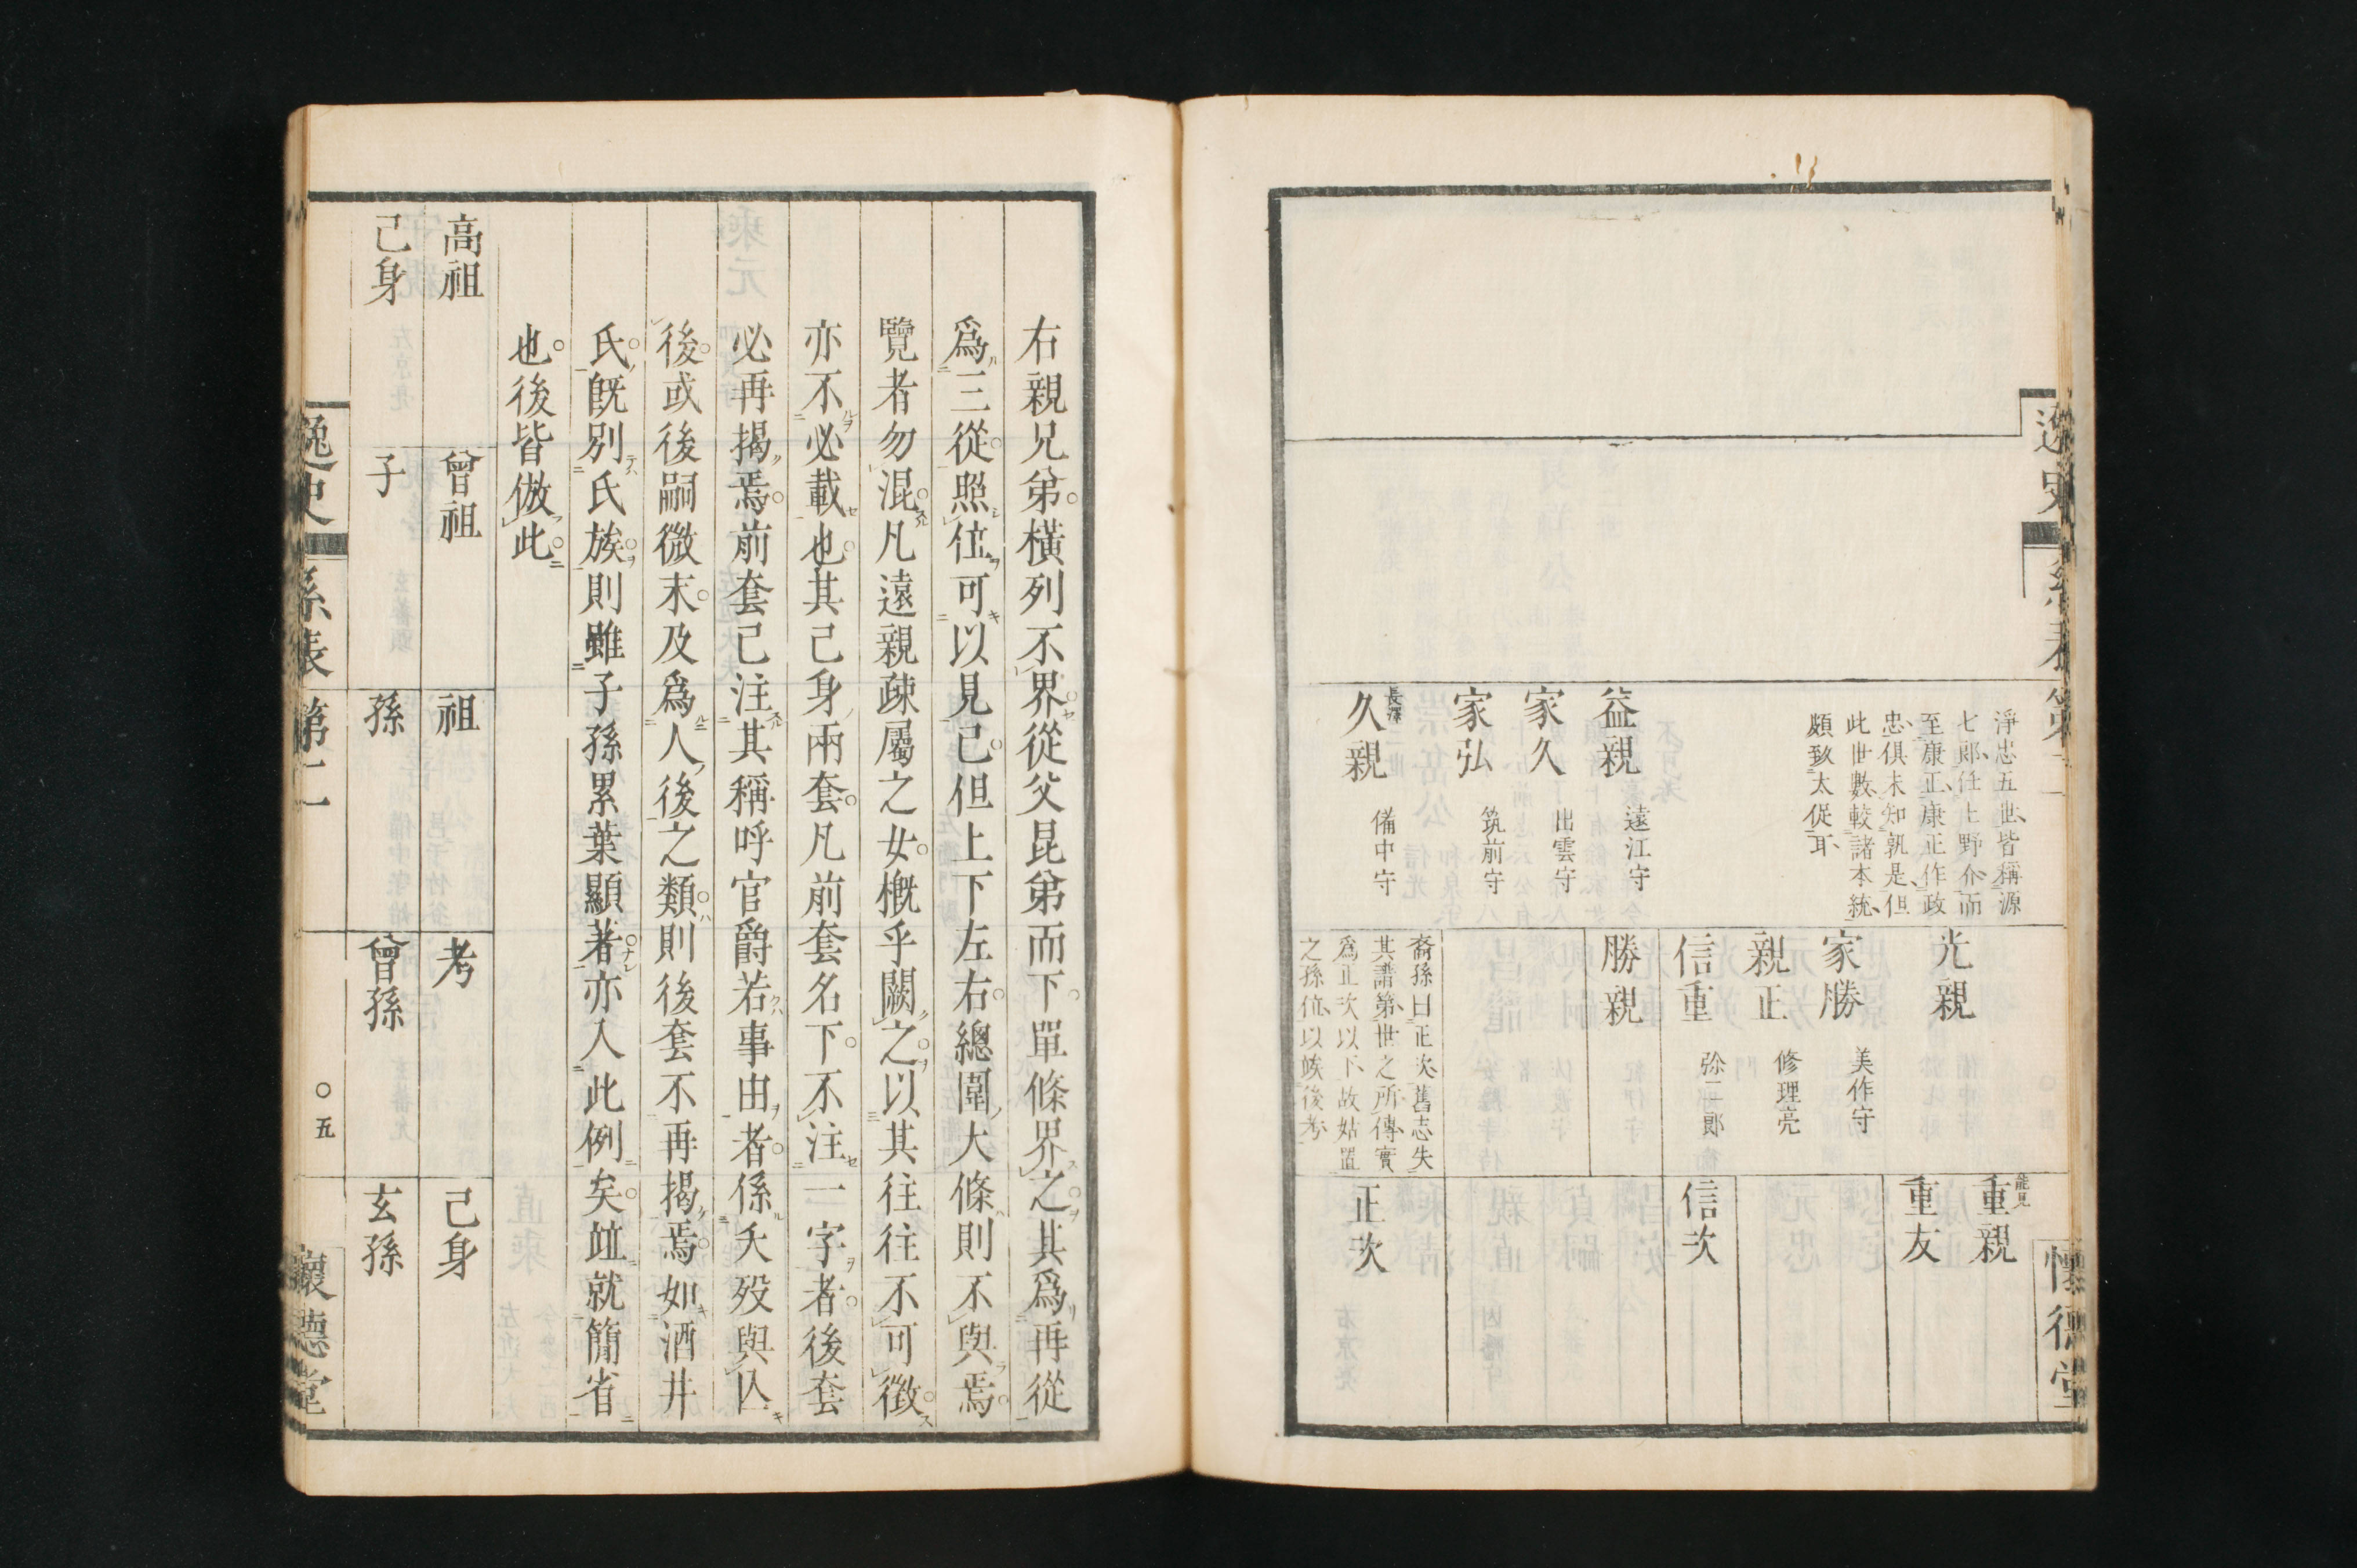 逸史
系表
第二
懷德堂
淨忠五世皆稱源
七郎任上野介而
至康正康正作政
忠俱未知孰是但
此世數較諸本統
頗致太促耳
益親 遠江守
家久 出雲守
家弘 筑前守
長澤
久親 備中守
光親
家勝 美作守
親正 修理亮
信重 弥二郎
勝親
裔孫曰正次舊志失
其譜第世之所傳實
爲正次以下故姑置
之孫位以竢後考
能見
重親
重友
信次
正次
右親兄弟橫列不界從父昆弟而下單條界之其爲再從
爲三從照位可以見已但上下左右總圍大條則不與焉
覽者勿混凡遠親疎屬之女槪乎闕之以其往往不可徵
亦不必載也其己身兩套凡前套名下不注一字者後套
必再揭焉前套已注其稱呼官爵若事由者係夭殁與亾
後或後嗣微末及爲人後之類則後套不再揭焉如酒井
氏旣別氏族則雖子孫累葉顯著亦入此例矣竝就簡省
也後皆倣此
高祖
曾祖
祖
考
己身
己身
子
孫
曾孫
玄孫
逸史
系表
第二
五
懷德堂